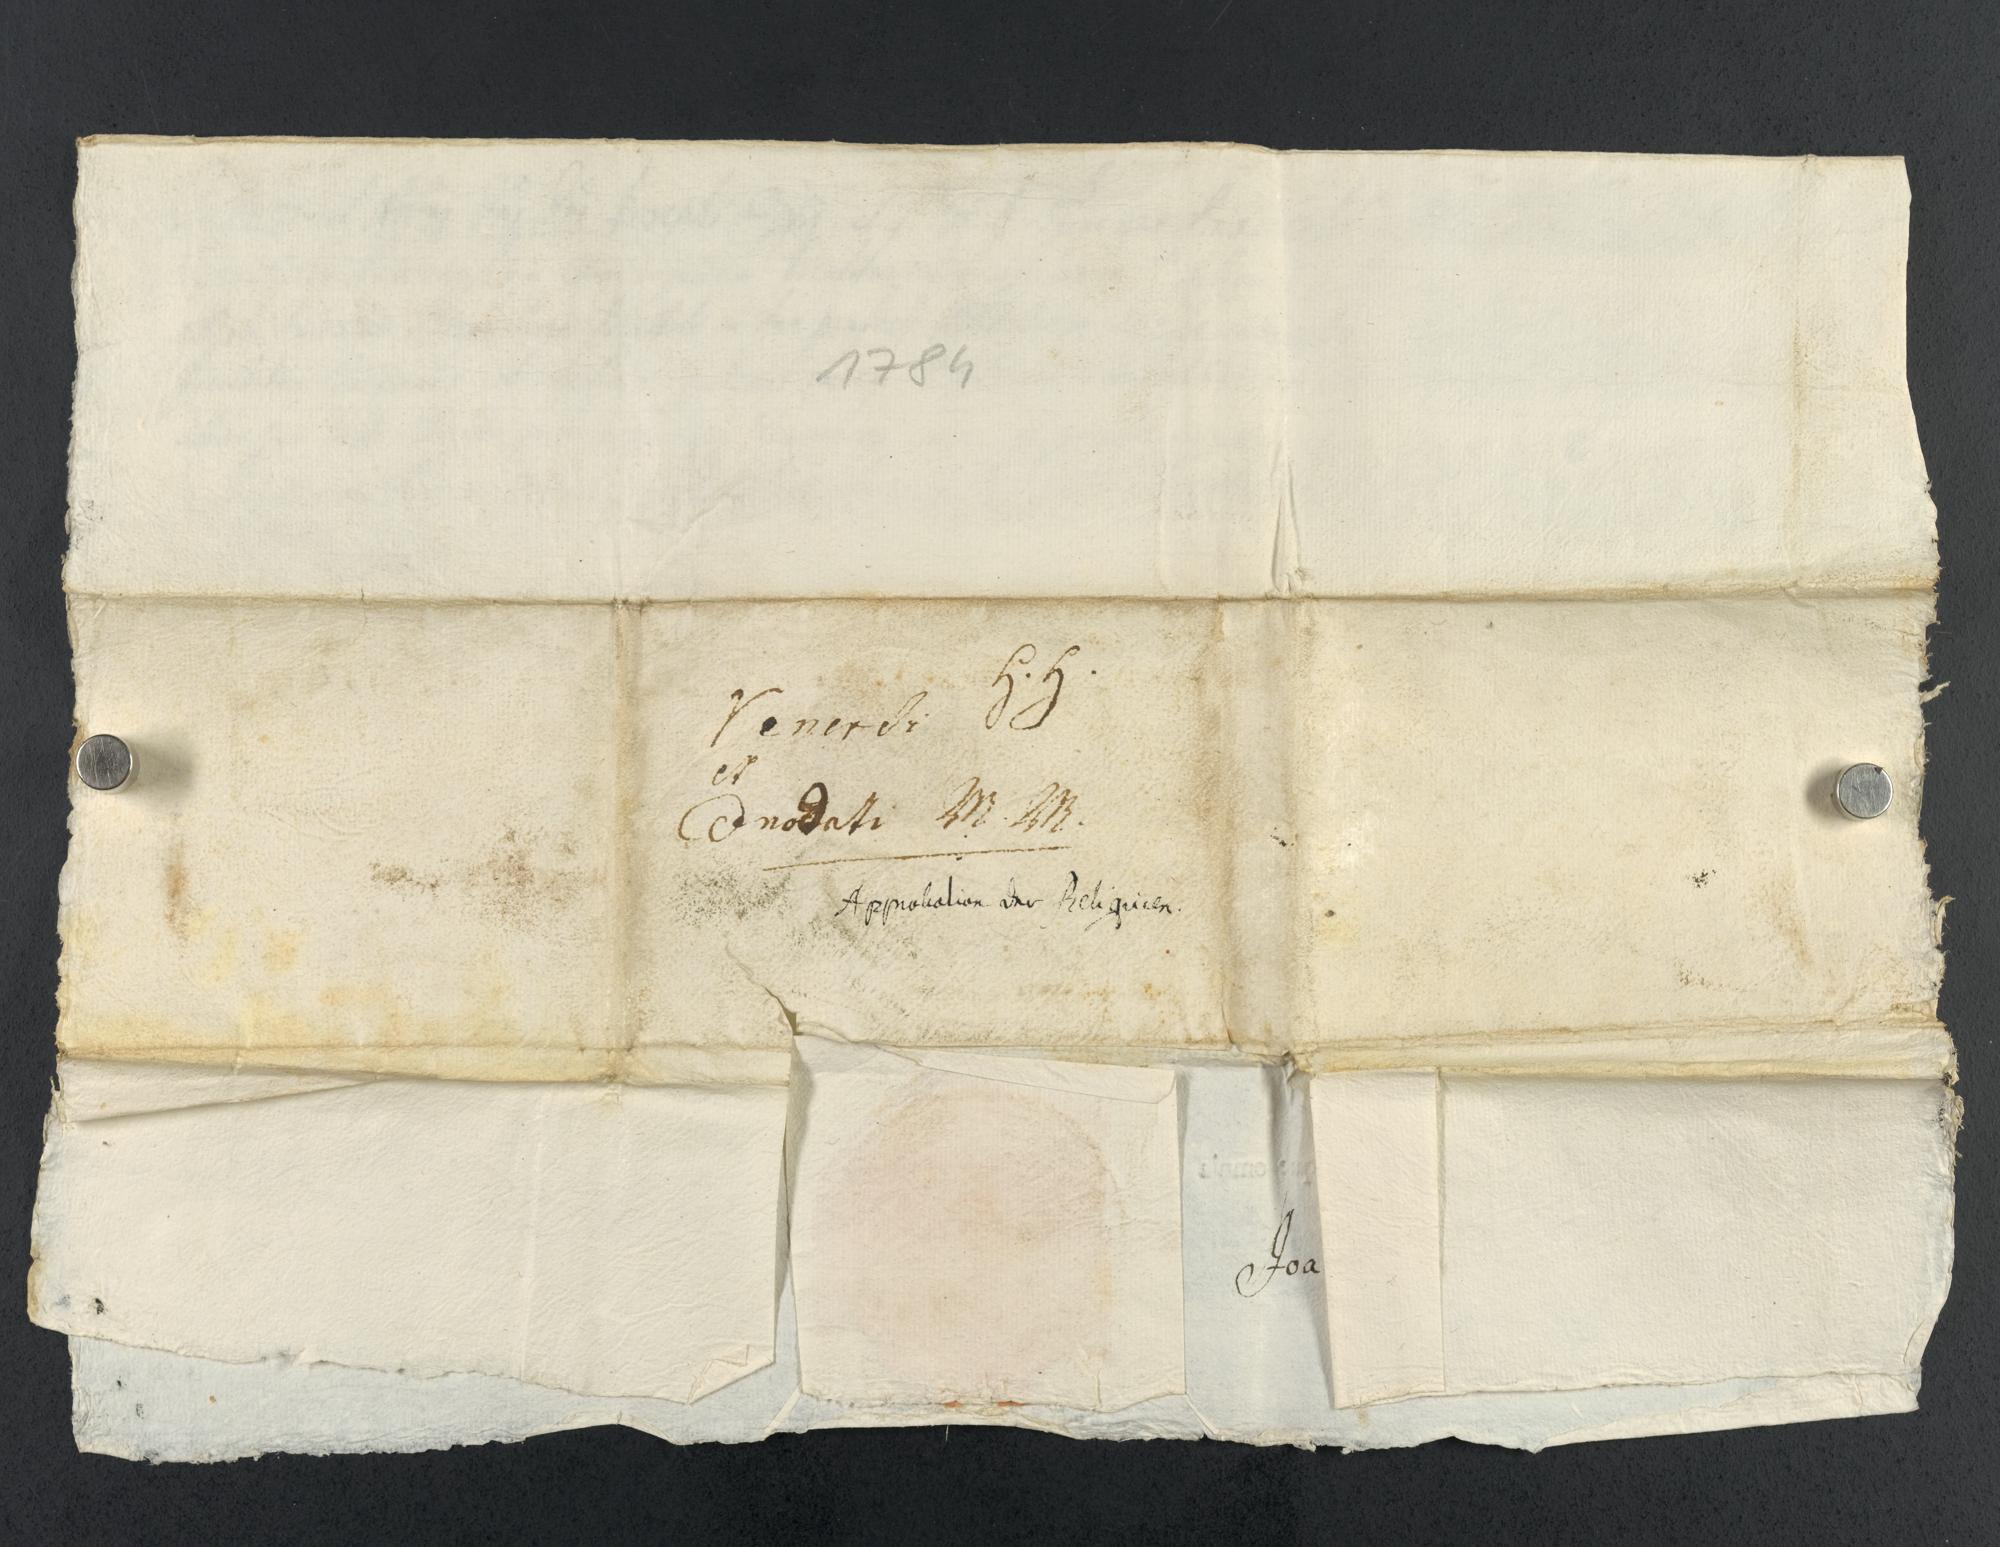 1784
Venerdi H. H.
et
Donodati M. M.
Approbation der Reliquien.
omnia
Joa